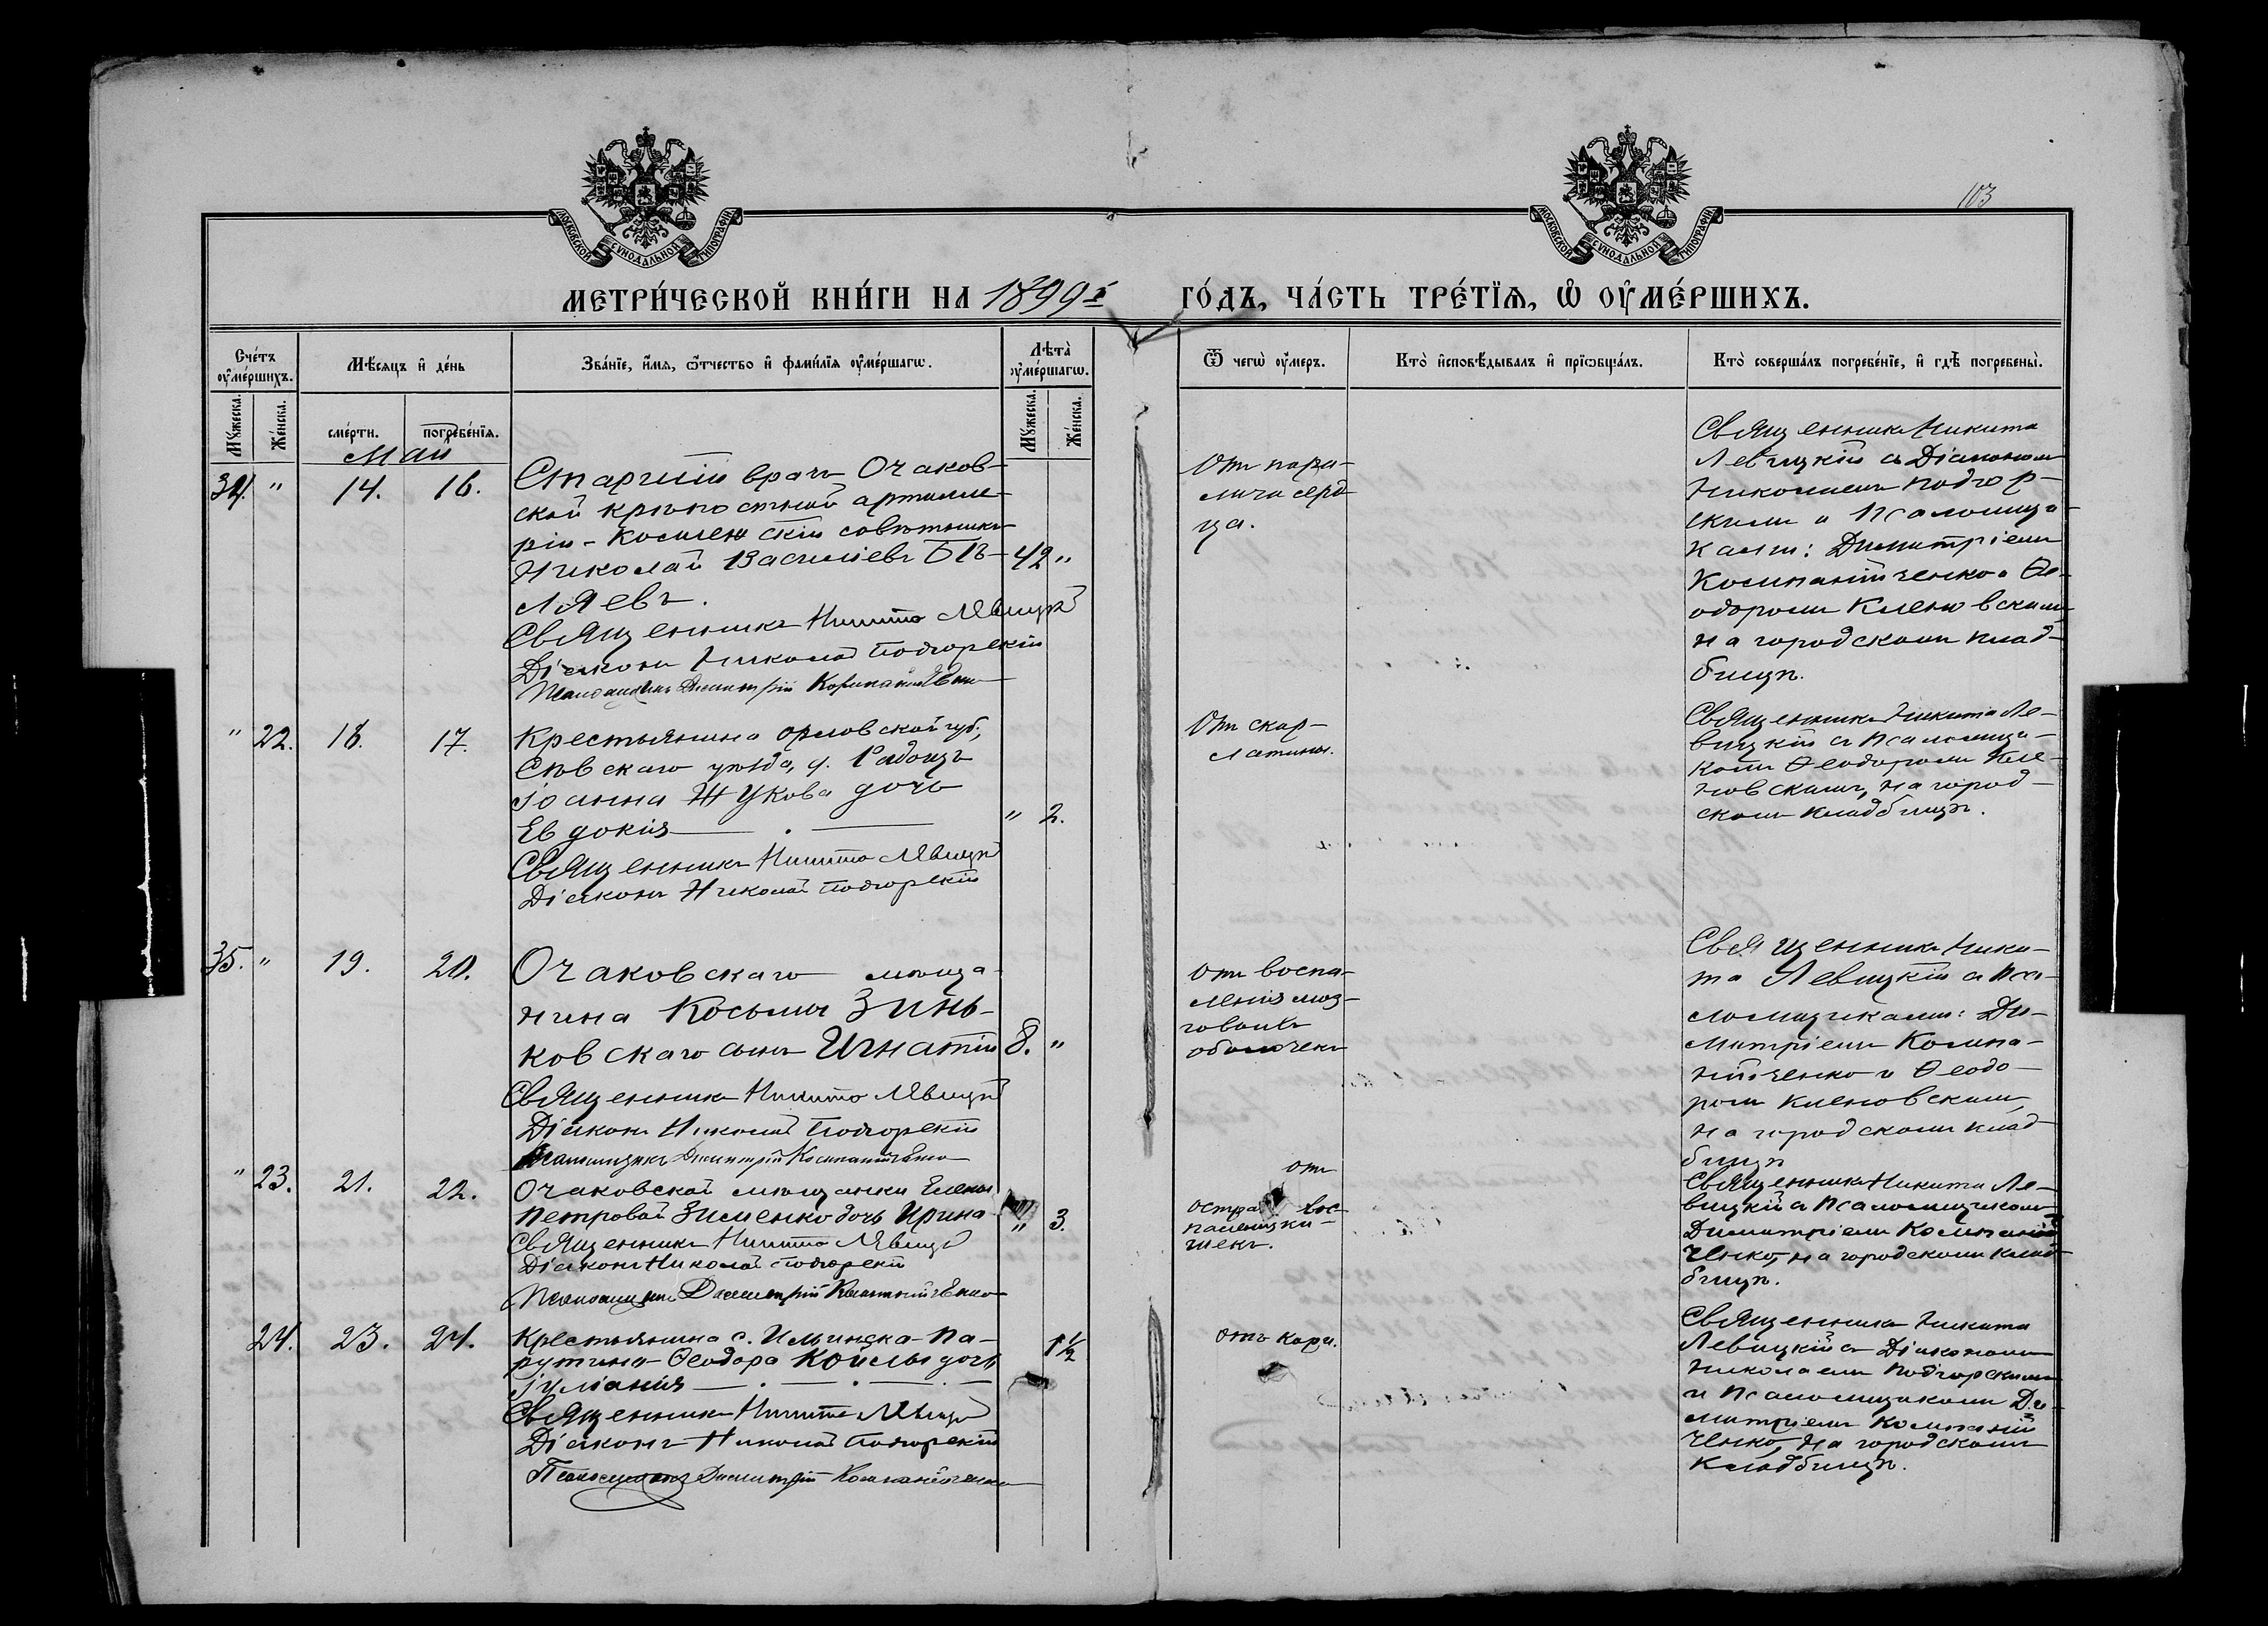 103
МОСКОВСКОЙ СѴНОДАЛЬНОЙ ТИПОГРАФІИ
МОСКОВСКОЙ СѴНОДАЛЬНОЙ ТИПОГРАФІИ
МЕТРИ́ЧЕСКОЙ КНИ́ГИ НА 1899й ГО́ДЪ, ЧА́СТЬ ТРЕ́ТЇѦ, Ѡ҆ ОУ҆МЕ́РШИХЪ.
Сче́тъ оу҆ме́ршихъ.
Мѣ́сѧцъ и҆ де́нь
Зва́нїе, и҆́мѧ, ѻ҆́тчество и҆ фами́лїѧ оу҆ме́ршагѡ.
Лѣ́та оу҆ме́ршагѡ.
Ѿ чегѡ̀ оу҆́меръ.
Кто̀ и҆сповѣ́дывалъ и҆ прїѡбща́лъ.
Кто̀ соверша́лъ погребе́нїе, и҆ гдѣ̀ погребены̀.
Мꙋ́жеска.
Же́нска.
сме́рти.
погребе́нїѧ.
Мꙋ́жеска.
Же́нска.
Май
34. " 14. 16.
Старшій врачъ Очаков-
ской крѣпостной артилле-
ріи - Коллежскій совѣтникъ
Николай Васильевъ Бѣ- 42 "
ляевъ.
Священникъ Никита Левицкій
Діаконъ Николай Подгорскій
Псаломщикъ Димитрій Компанійченко
Отъ пара-
лича серд-
ца.
Священникъ Никита
Левицкій съ Діакономъ
Николаемъ Подгор-
скимъ и Псаломщи-
ками: Димитріемъ
Компанійченко и Ѳе-
одоромъ Кленовскимъ,
на городскомъ клад-
бищѣ.
" 22. 16. 17.
Крестьянина Орловской губ.,
Сѣвскаго уѣзда,
Іоанна Жукова дочь
Евдокія " 2.
Священникъ Никита Левицкій
Діаконъ Николай Подгорскій
Отъ скар-
латины.
Священникъ Никита Ле-
вицкій съ Псаломщи-
комъ Ѳеодоромъ Кле-
новскимъ, на город-
скомъ кладбищѣ.
35. " 19. 20.
Очаковскаго мѣща-
нина Косьмы Зинь-
ковскаго сынъ Игнатій 8. "
Священникъ Никита Левицкій
Діаконъ Николай Подгорскій
Псаломщикъ Димитрій Компанійченко
Отъ воспа-
ленія моз-
говыхъ
оболочекъ
Священникъ Ники-
та Левицкій съ Пса-
ломщиками: Ди-
митріемъ Компа-
нійченко и Ѳеодо-
ромъ Кленовскимъ,
на городскомъ клад-
бищѣ
" 23. 21. 22.
Очаковской мѣщанки Елены
Петровой Зименко дочь Ирина " 3.
Священникъ Никита Левицкій
Діаконъ Николай Подгорскій
Псаломщикъ Димитрій Компанійченко
Отъ
Священникъ Никита Ле-
вицкій съ Псаломщикомъ
Димитріемъ Компаній-
ченко, на городскомъ клад-
бищѣ.
24. 23. 24.
Крестьянина с. Ильинска-Па-
рутина Ѳеодора дочь 1½
Іуліанія
Священникъ Никита Левицкій
Діаконъ Николай Подгорскій
Псаломщикъ Димитрій Компанійченко
Отъ кори.
Священникъ Никита
Левицкій съ Діакономъ
Николаемъ Подгорскимъ
и Псаломщикомъ Ди-
митріемъ Компаній-
ченко, на городскомъ
кладбищѣ.